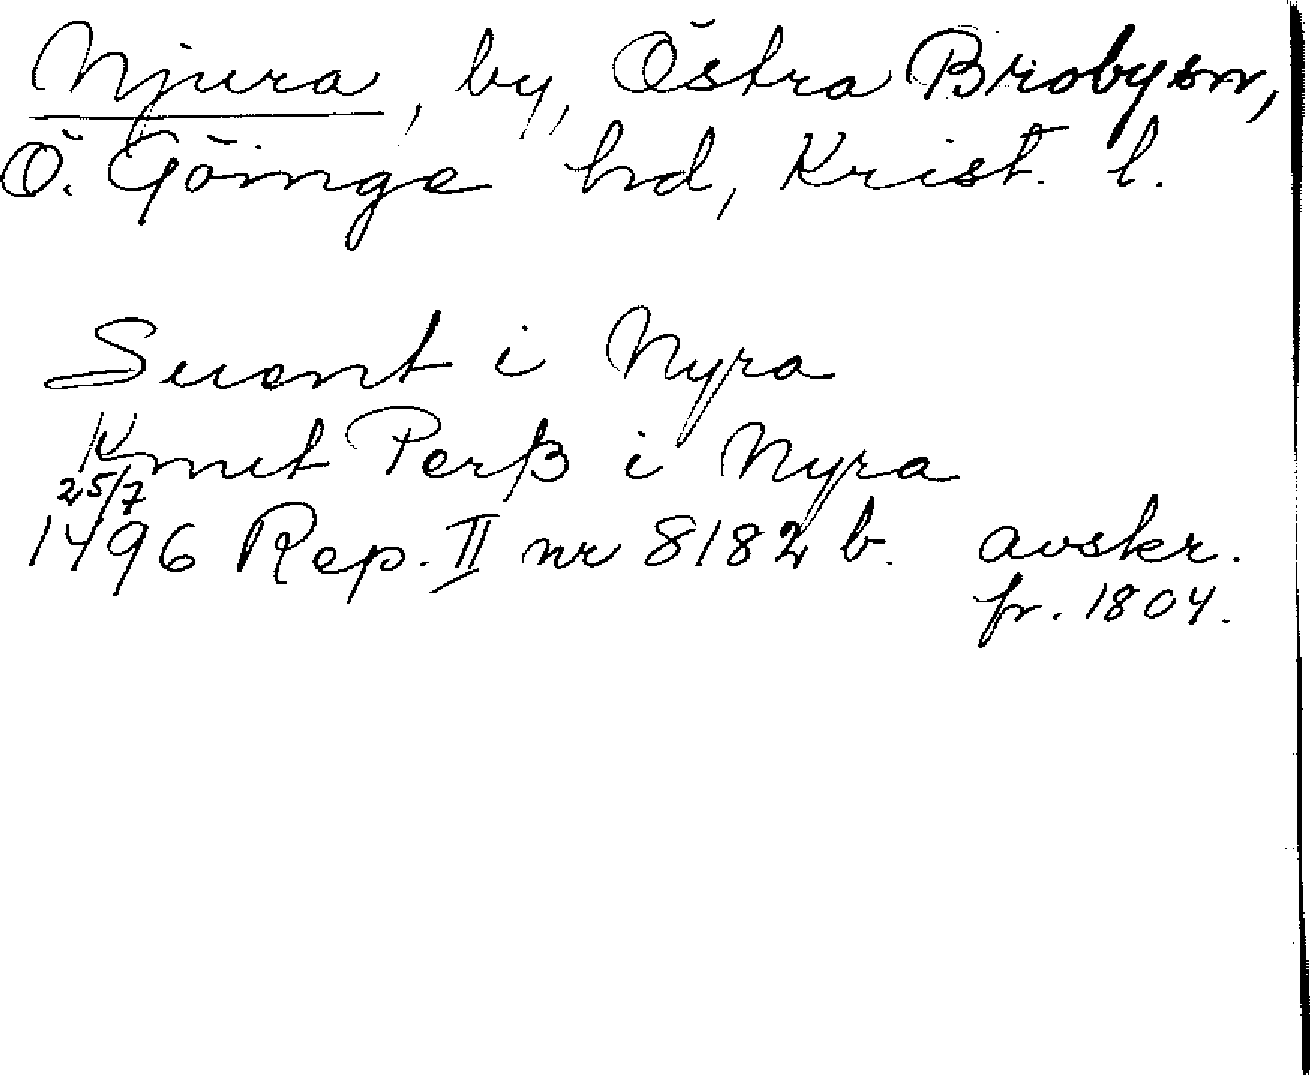 Njura, by, Östra Broby sn,
Ö. Göinge hd, Krist. l.
Suent i Nyra
Knut Perß i Nyra
25/7
1496 Rep. II nr 8182 b. avskr.
fr. 1804.